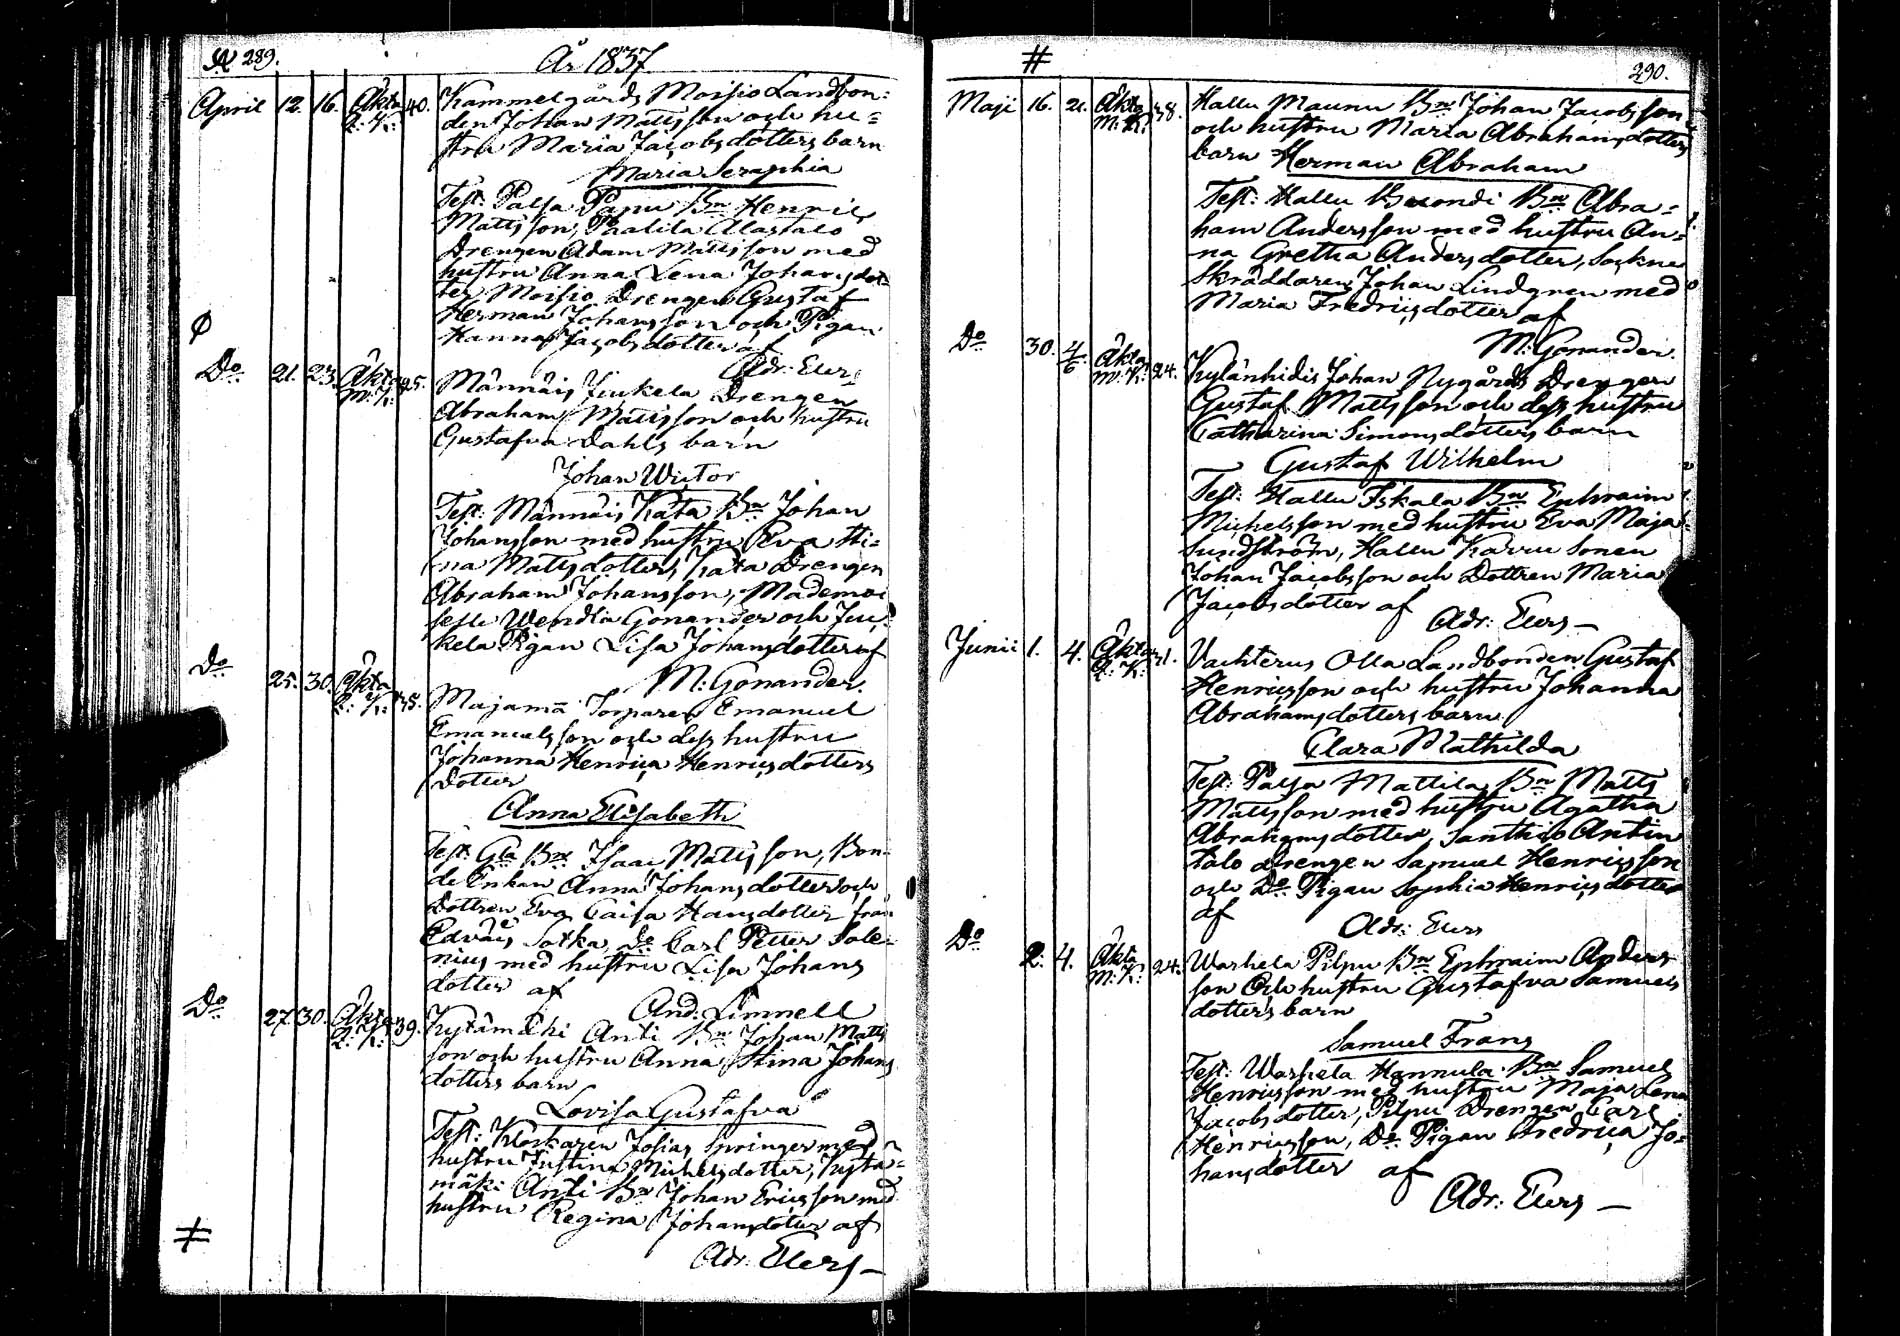 289.
År 1837
April 12. 16. Äkta Q: K: 40. Kammelgårds Moisio Landbon=
den Johan Mattsson och hu=
stru Maria Jacobsdotters barn
Maria Seraphia
Test: Palsa Panu Bn Henric
Mattsson, Paalila Alastalo
Drengen Adam Mattsson med
hustru Anna Lena Johansdot=
ter Moisio Drengen Gustaf
Herman Johansson och Pigan
Hanna Jacobsdotter af
Adr: Eurs
Do 21. 23. Äkta M: K: 25. Männäis Jukela Drengen
Abraham Mattsson och hustru
Gustafva Dahls barn
Johan Victor
Test: Männäis Kata Bn Johan
Johansson med hustru Eva Sti=
na Mattsdotter, Kata Drengen
Abraham Johansson, Mademoi
selle Wendla Gonander och Ju=
kela Pigan Lisa Johansdotter af
M: Gonander.
Do 25. 30. Äkta Q: K: 35. Majamä Torparen Emanuel
Emanuelsson och dess hustru
Johanna Henrica Henricsdotters
dotter
Anna Elisabeth
Test: Gla Bn Isaac Mattsson, Bon=
de Enkan Anna Johansdotter och
Dottren Eva Caisa Hansdotter från
Edväis Sotka, Do Carl Petter Sale=
nius med hustru Lisa Johans
dotter af
And: Limnell
Do 27. 30. Äkta Q: K: 39. Kytämäki Anti Bn Johan Matts
son och hustru Anna Stina Johans
dotters barn
Lovisa Gustafva
Test: Klockaren Josias Springer med
hustru Justina Michelsdotter, Kytä=
mäki Anti Bn Johan Ericsson med
hustru Regina Johansdotter af
Adr: Eurs —
#
290.
Maji 16. 21. Äkta M: K: 38. Hallu Maunu Bn Johan Jacobsson
och hustru Maria Abrahamsdotters
barn Herman Abraham
Test: Hallu Buondi Bn Abra=
ham Andersson med hustru An=
na Gretha Andersdotter, Sockne
Skräddaren Johan Lindgren med
Maria Fredricsdotter af
M: Gonander.
Do 30. 4/6 Äkta M: K: 24. Kylänhidis Johan Nygårds Drengen
Gustaf Mattsson och dess hustru
Catharina Simonsdotters barn
Gustaf Wilhelm
Test: Hallu Iskala Bn Ephraim
Michelsson med hustru Eva Maja
Sundström, Hallu Kavu Sonen
Johan Jacobsson och Dottren Maria
Jacobsdotter af
Adr: Eurs —
Junii 1. 4. Äkta Q: K: 31. Vachterus Olla Landbonden Gustaf
Henricsson och hustru Johanna
Abrahamsdotters barn
Clara Mathilda
Test: Palsa Mattila Bn Matts
Mattsson med hustru Agatha
Abrahamsdotter, Santhio Antin
talo drengen Samuel Henricsson
och Do Pigan Sophia Henricsdotter
af
Adr: Eurs
Do 2. 4. Äkta M: K: 24. Warhela Pilpu Bn Ephraim Anders
son Och hustru Gustafva Samuels
dotters barn
Samuel Frans
Test: Warhela Hannula Bn Samuel
Henricsson med hustru Maja Lena
Jacobsdotter, Pilpu Drengen Carl
Henricsson, Do Pigan Fredrica Jo=
hansdotter af
Adr: Eurs —